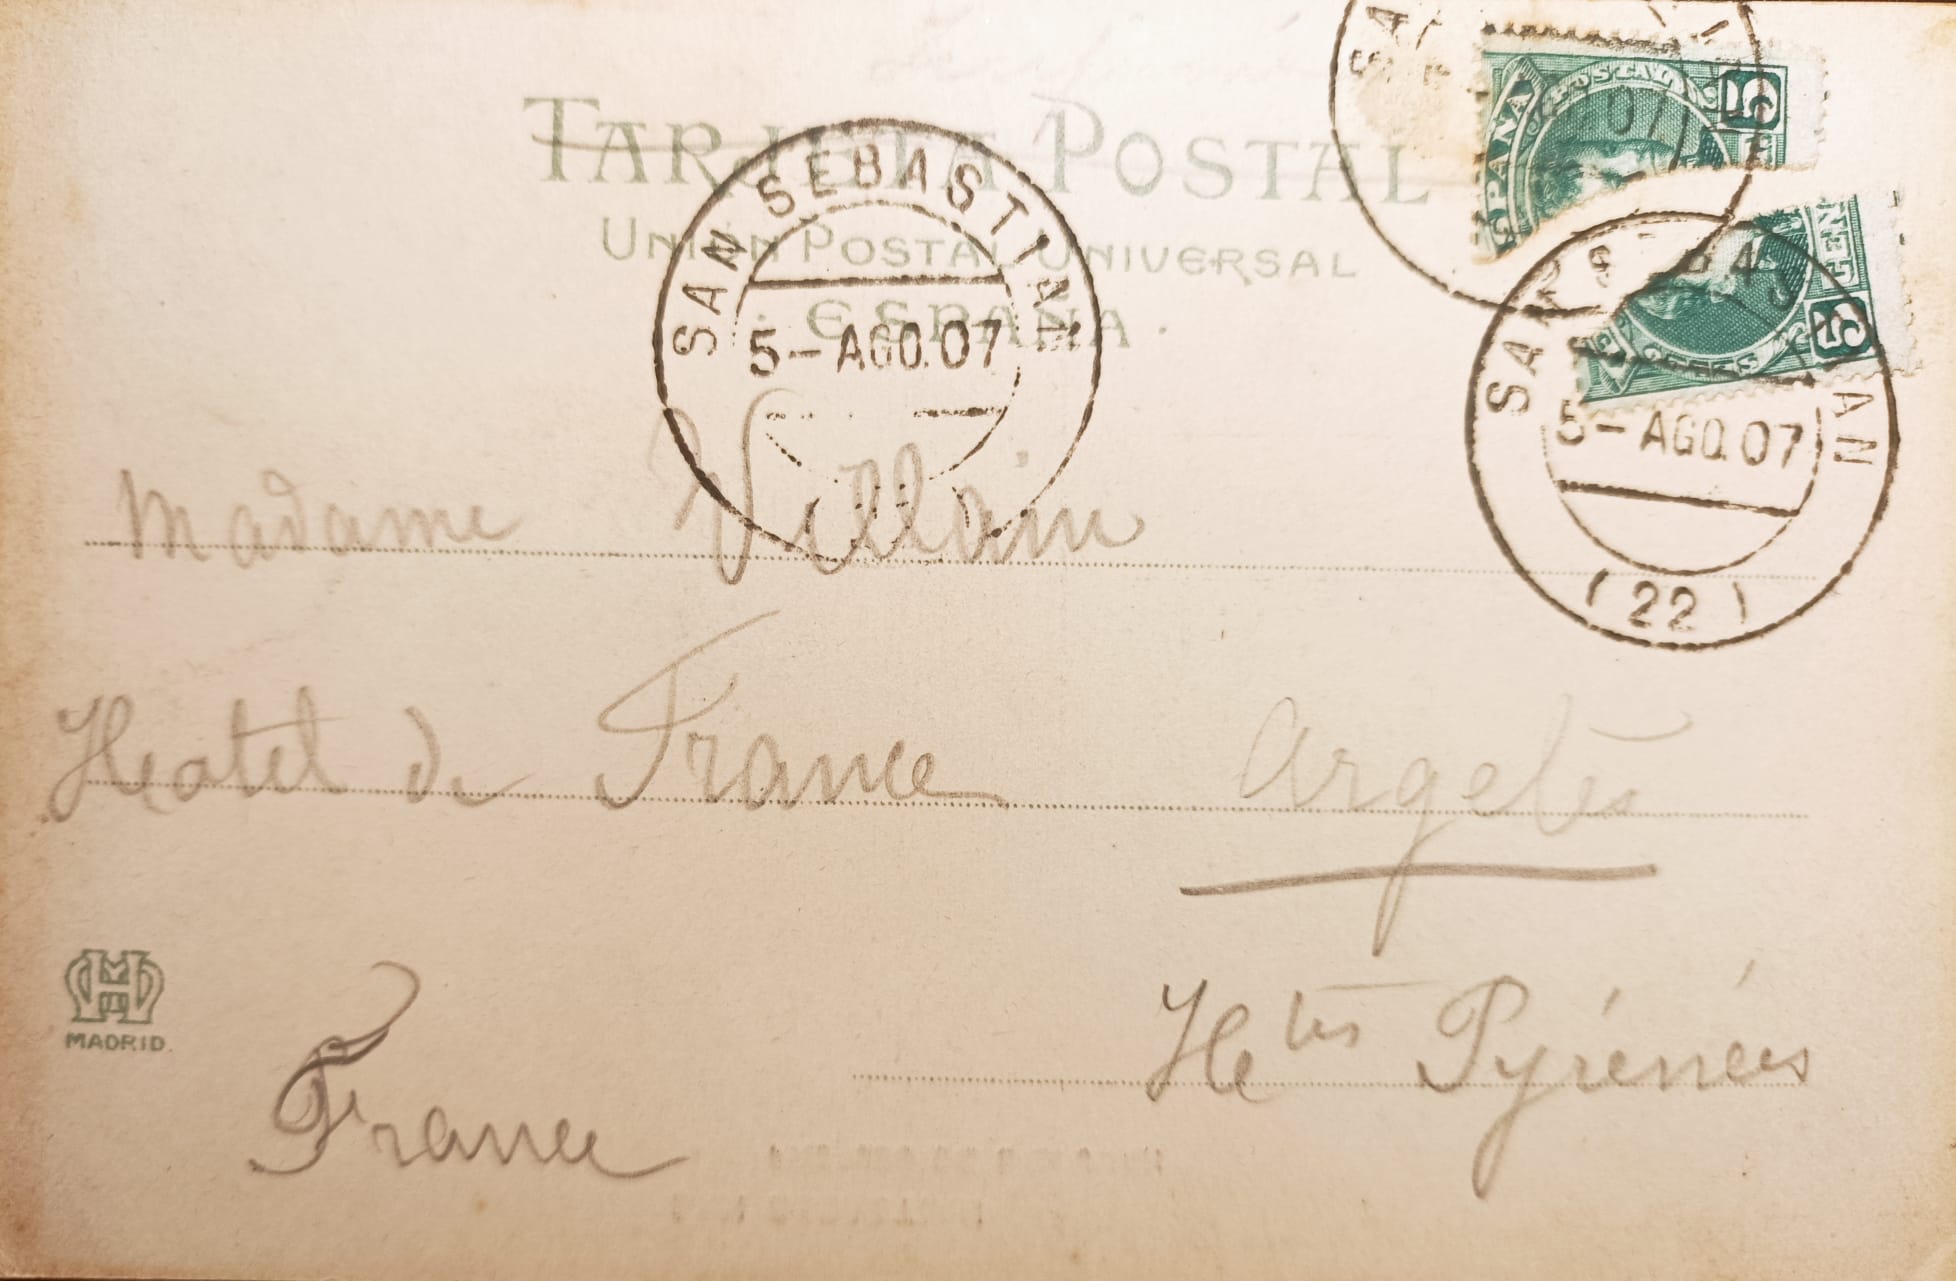 TARJETA POSTAL
UNIÓN POSTAL UNIVERSAL
· ESPAÑA ·
ESPAÑA
POSTAL
5C
CEN
5C
SAN SEBASTIAN
5-AGO.07
SAN SEBASTIAN
5-AGO.07
(22)
Madame Villain
Hotel de France Argelès
Htes Pyrénées
France
MADRID.